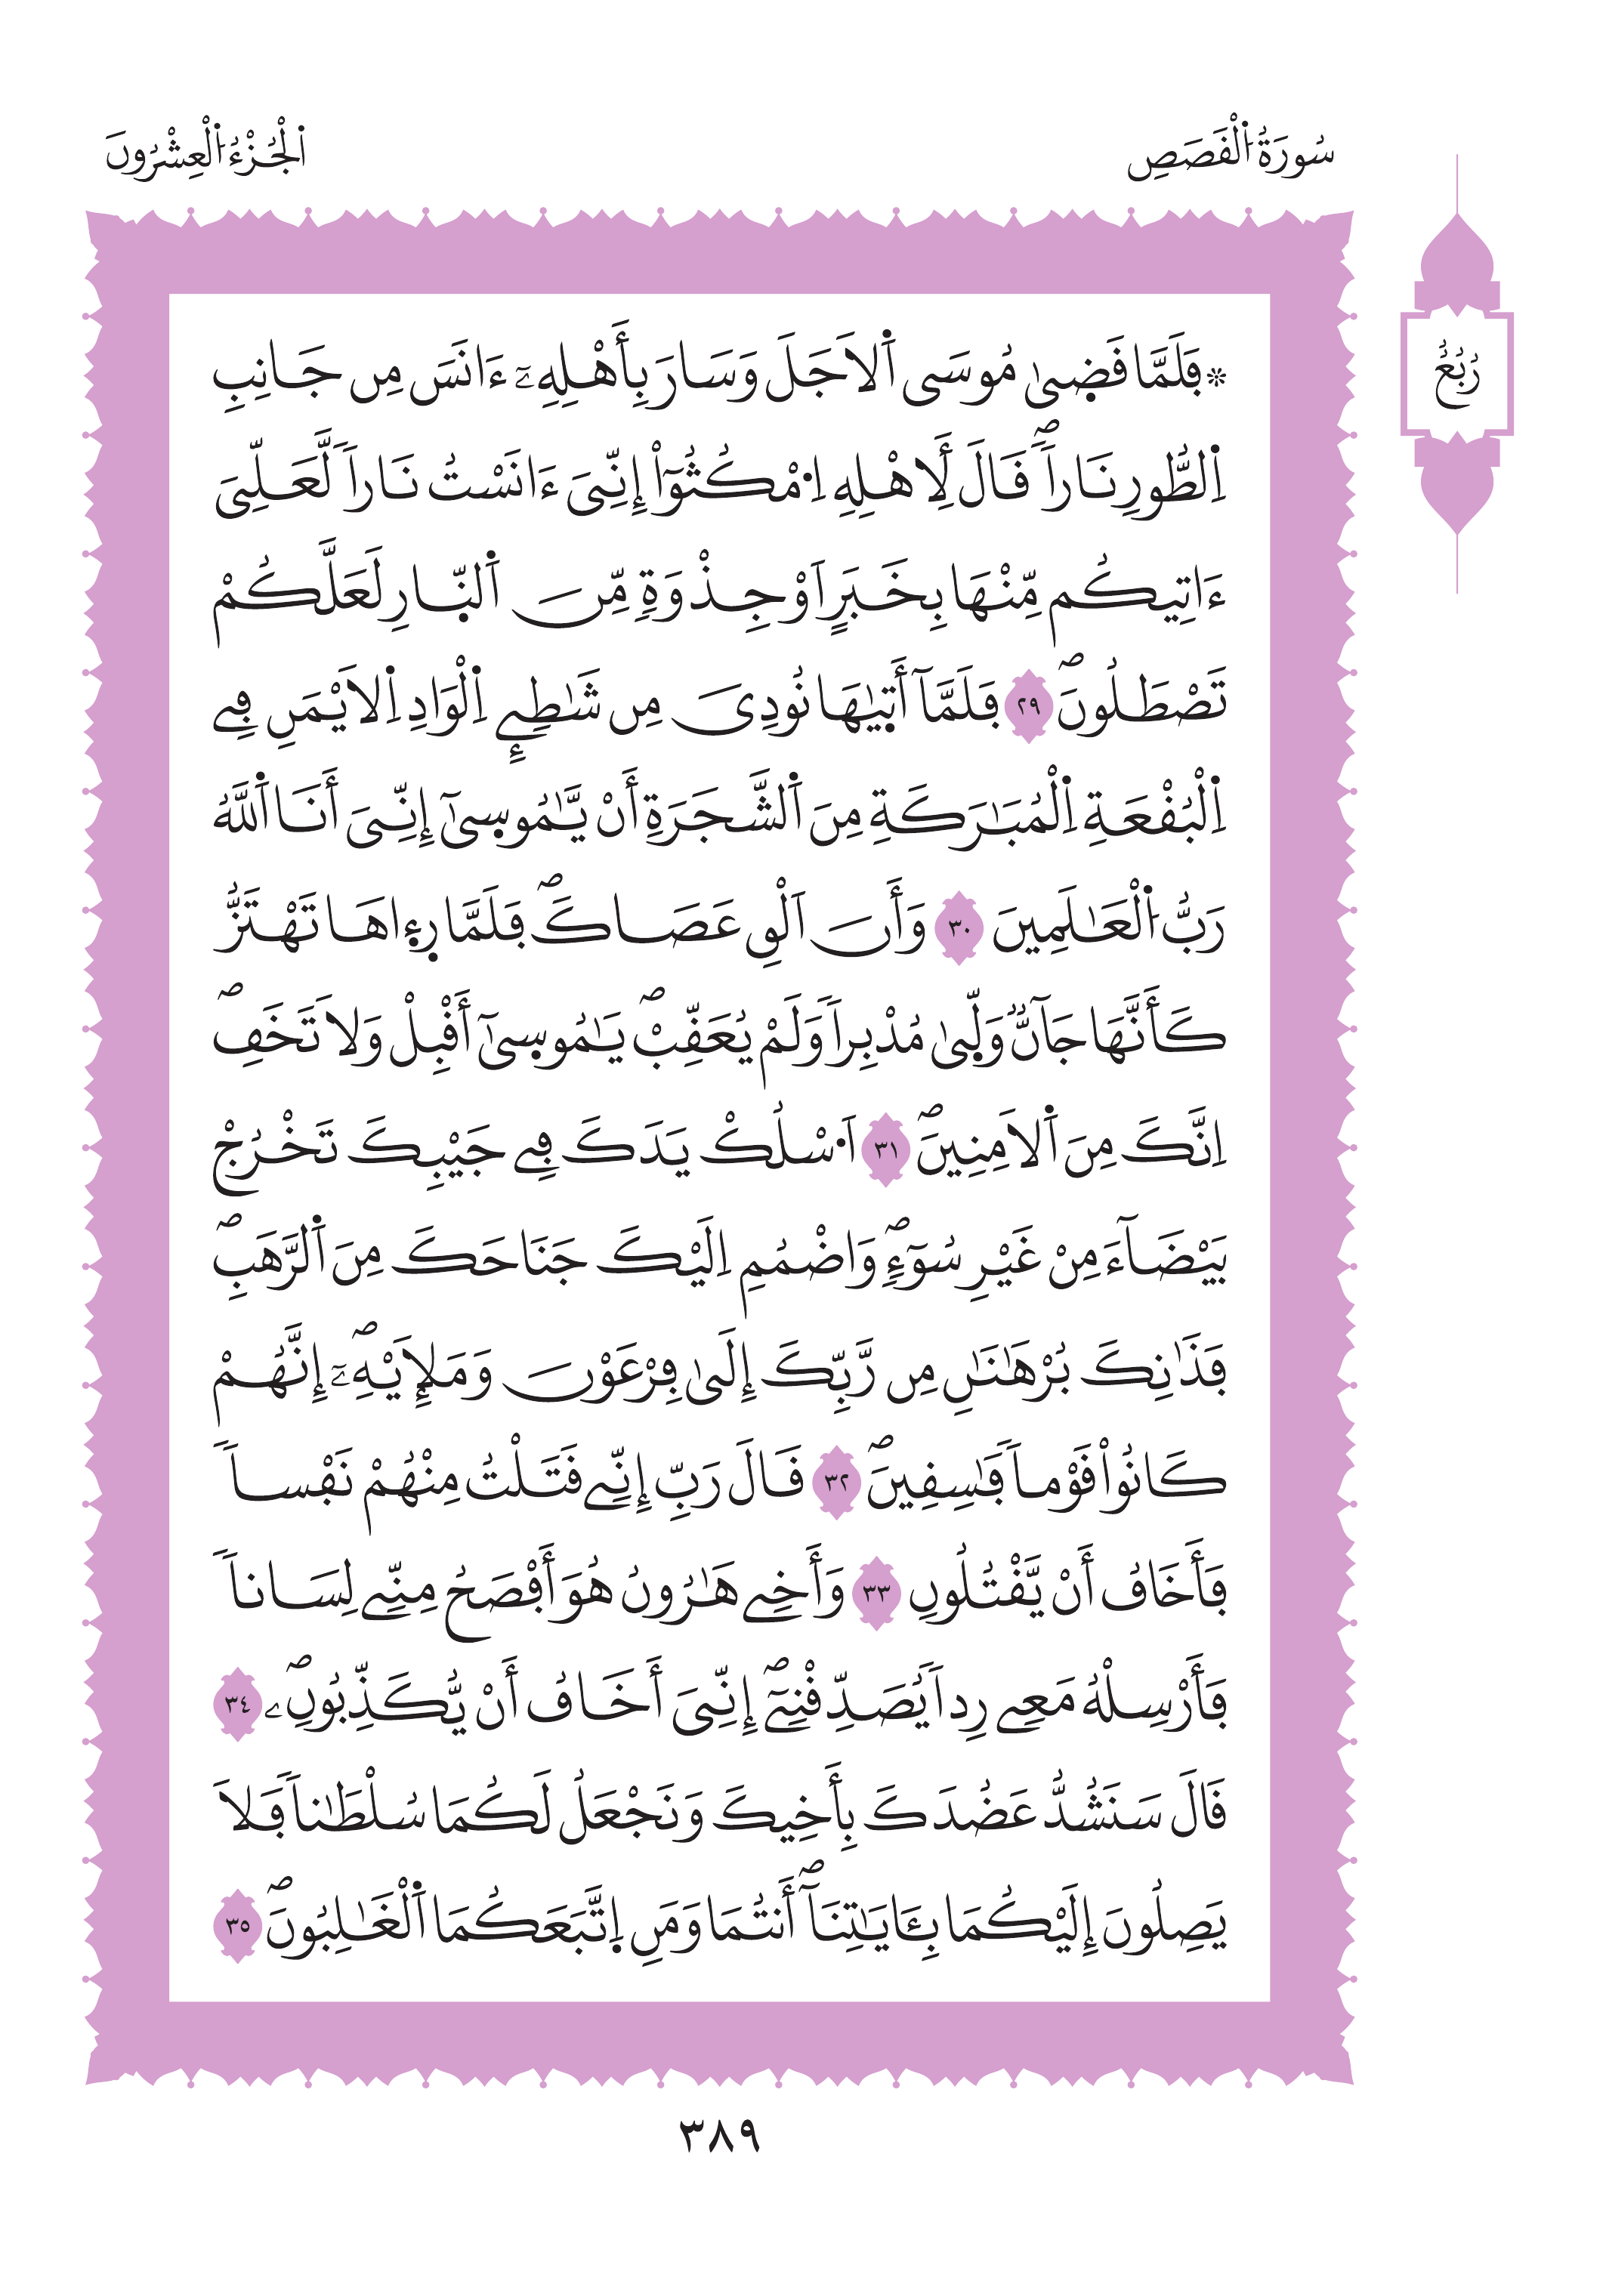 سُورَةُ اُ۬لْقَصَصِ
اَ۬لْجُزْءُ اُ۬لْعِشْرُونَ
رُبُعُ
* فَلَمَّا قَض۪ىٰ مُوسَى اَ۬لَاجَلَ وَسَارَ بِأَهْلِهِۦٓ ءَانَسَ مِن جَانِبِ
اِ۬لطُّورِ نَاراٗۖ قَالَ لَأِهْلِهِ اِ۟مْكُثُوٓاْ إِنِّيَ ءَانَسْتُ نَاراٗ لَّعَلِّيَ
ءَاتِيكُم مِّنْهَا بِخَبَرٍ اَوْ جِذْوَةٖ مِّنَ اَ۬لنّ۪ارِ لَعَلَّكُمْ
تَصْطَلُونَۖ ٢٩ فَلَمَّآ أَت۪يٰهَا نُودِيَ مِن شَٰطِےِٕ اِ۬لْوَادِ اِ۬لَايْمَنِ فِے
اِ۬لْبُقْعَةِ اِ۬لْمُبَٰرَكَةِ مِنَ اَ۬لشَّجَرَةِ أَنْ يَّٰمُوس۪ىٰٓ إِنِّيَ أَنَا اَ۬للَّهُ
رَبُّ اُ۬لْعَٰلَمِينَ ٣٠ وَأَنَ اَلْقِ عَصَاكَۖ فَلَمَّا ر۪ء۪اهَا تَهْتَزُّ
كَأَنَّهَا جَآنّٞ وَلّ۪ىٰ مُدْبِراٗ وَلَمْ يُعَقِّبْۖ يَٰمُوس۪ىٰٓ أَقْبِلْ وَلَا تَخَفِۖ
اِنَّكَ مِنَ اَ۬لَامِنِينَۖ ٣١ اَ۟سْلُكْ يَدَكَ فِے جَيْبِكَ تَخْرُجْ
بَيْضَآءَ مِنْ غَيْرِ سُوٓءٖۖ وَاضْمُمِ اِلَيْكَ جَنَاحَكَ مِنَ اَ۬لرَّهَبِۖ
فَذَٰنِكَ بُرْهَٰنَٰنِ مِن رَّبِّكَ إِلَىٰ فِرْعَوْنَ وَمَلَإِيْهِۦٓۖ إِنَّهُمْ
كَانُواْ قَوْماٗ فَٰسِقِينَۖ ٣٢ قَالَ رَبِّ إِنِّے قَتَلْتُ مِنْهُمْ نَفْساٗ
فَأَخَافُ أَنْ يَّقْتُلُونِ ٣٣ وَأَخِے هَٰرُونُ هُوَ أَفْصَحُ مِنِّے لِسَاناٗ
فَأَرْسِلْهُ مَعِے رِداٗ يُصَدِّقْنِےٓۖ إِنِّيَ أَخَافُ أَنْ يُّكَذِّبُونِۦۖ ٣٤
قَالَ سَنَشُدُّ عَضُدَكَ بِأَخِيكَ وَنَجْعَلُ لَكُمَا سُلْطَٰناٗ فَلَا
يَصِلُونَ إِلَيْكُمَا بِـَٔايَٰتِنَآۖ أَنتُمَا وَمَنِ اِ۪تَّبَعَكُمَا اَ۬لْغَٰلِبُونَۖ ٣٥
٣٨٩